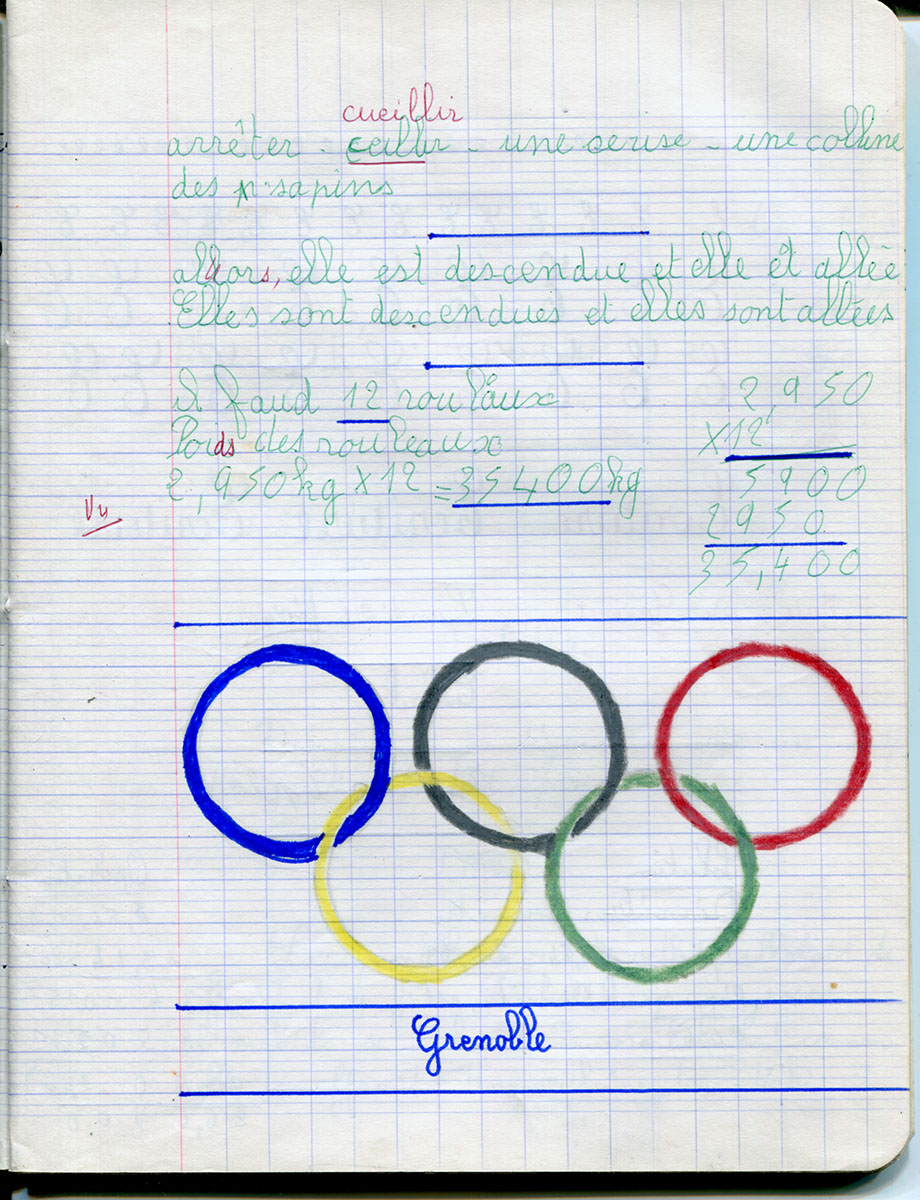 cueillir
arrêter - ceillir - une cerise - une colline
des sapins
allors, elle est descendue et elle êt allée
Elles sont descendues et elles sont allées
Il faud 12 rouleaux
Poids des rouleaux
2,950kg × 12 = 35400kg
Vu
2950
×12
5900
2950
35,400
Grenoble